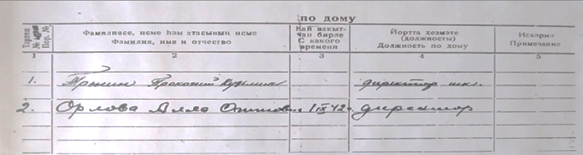 по дому
Тәртип № Пор. №
Фамилиясе, исме һәм атасының исме
Фамилия, имя и отчество
Кай вакыттан бирле
С какого времени
Йортта хезмәте (должносты)
Должность по дому
Искәрмә
Примечание
1 2 3 4 5
1. Прокопий директор шк.
2. Орлова Алла 1 IX 42 г. директор